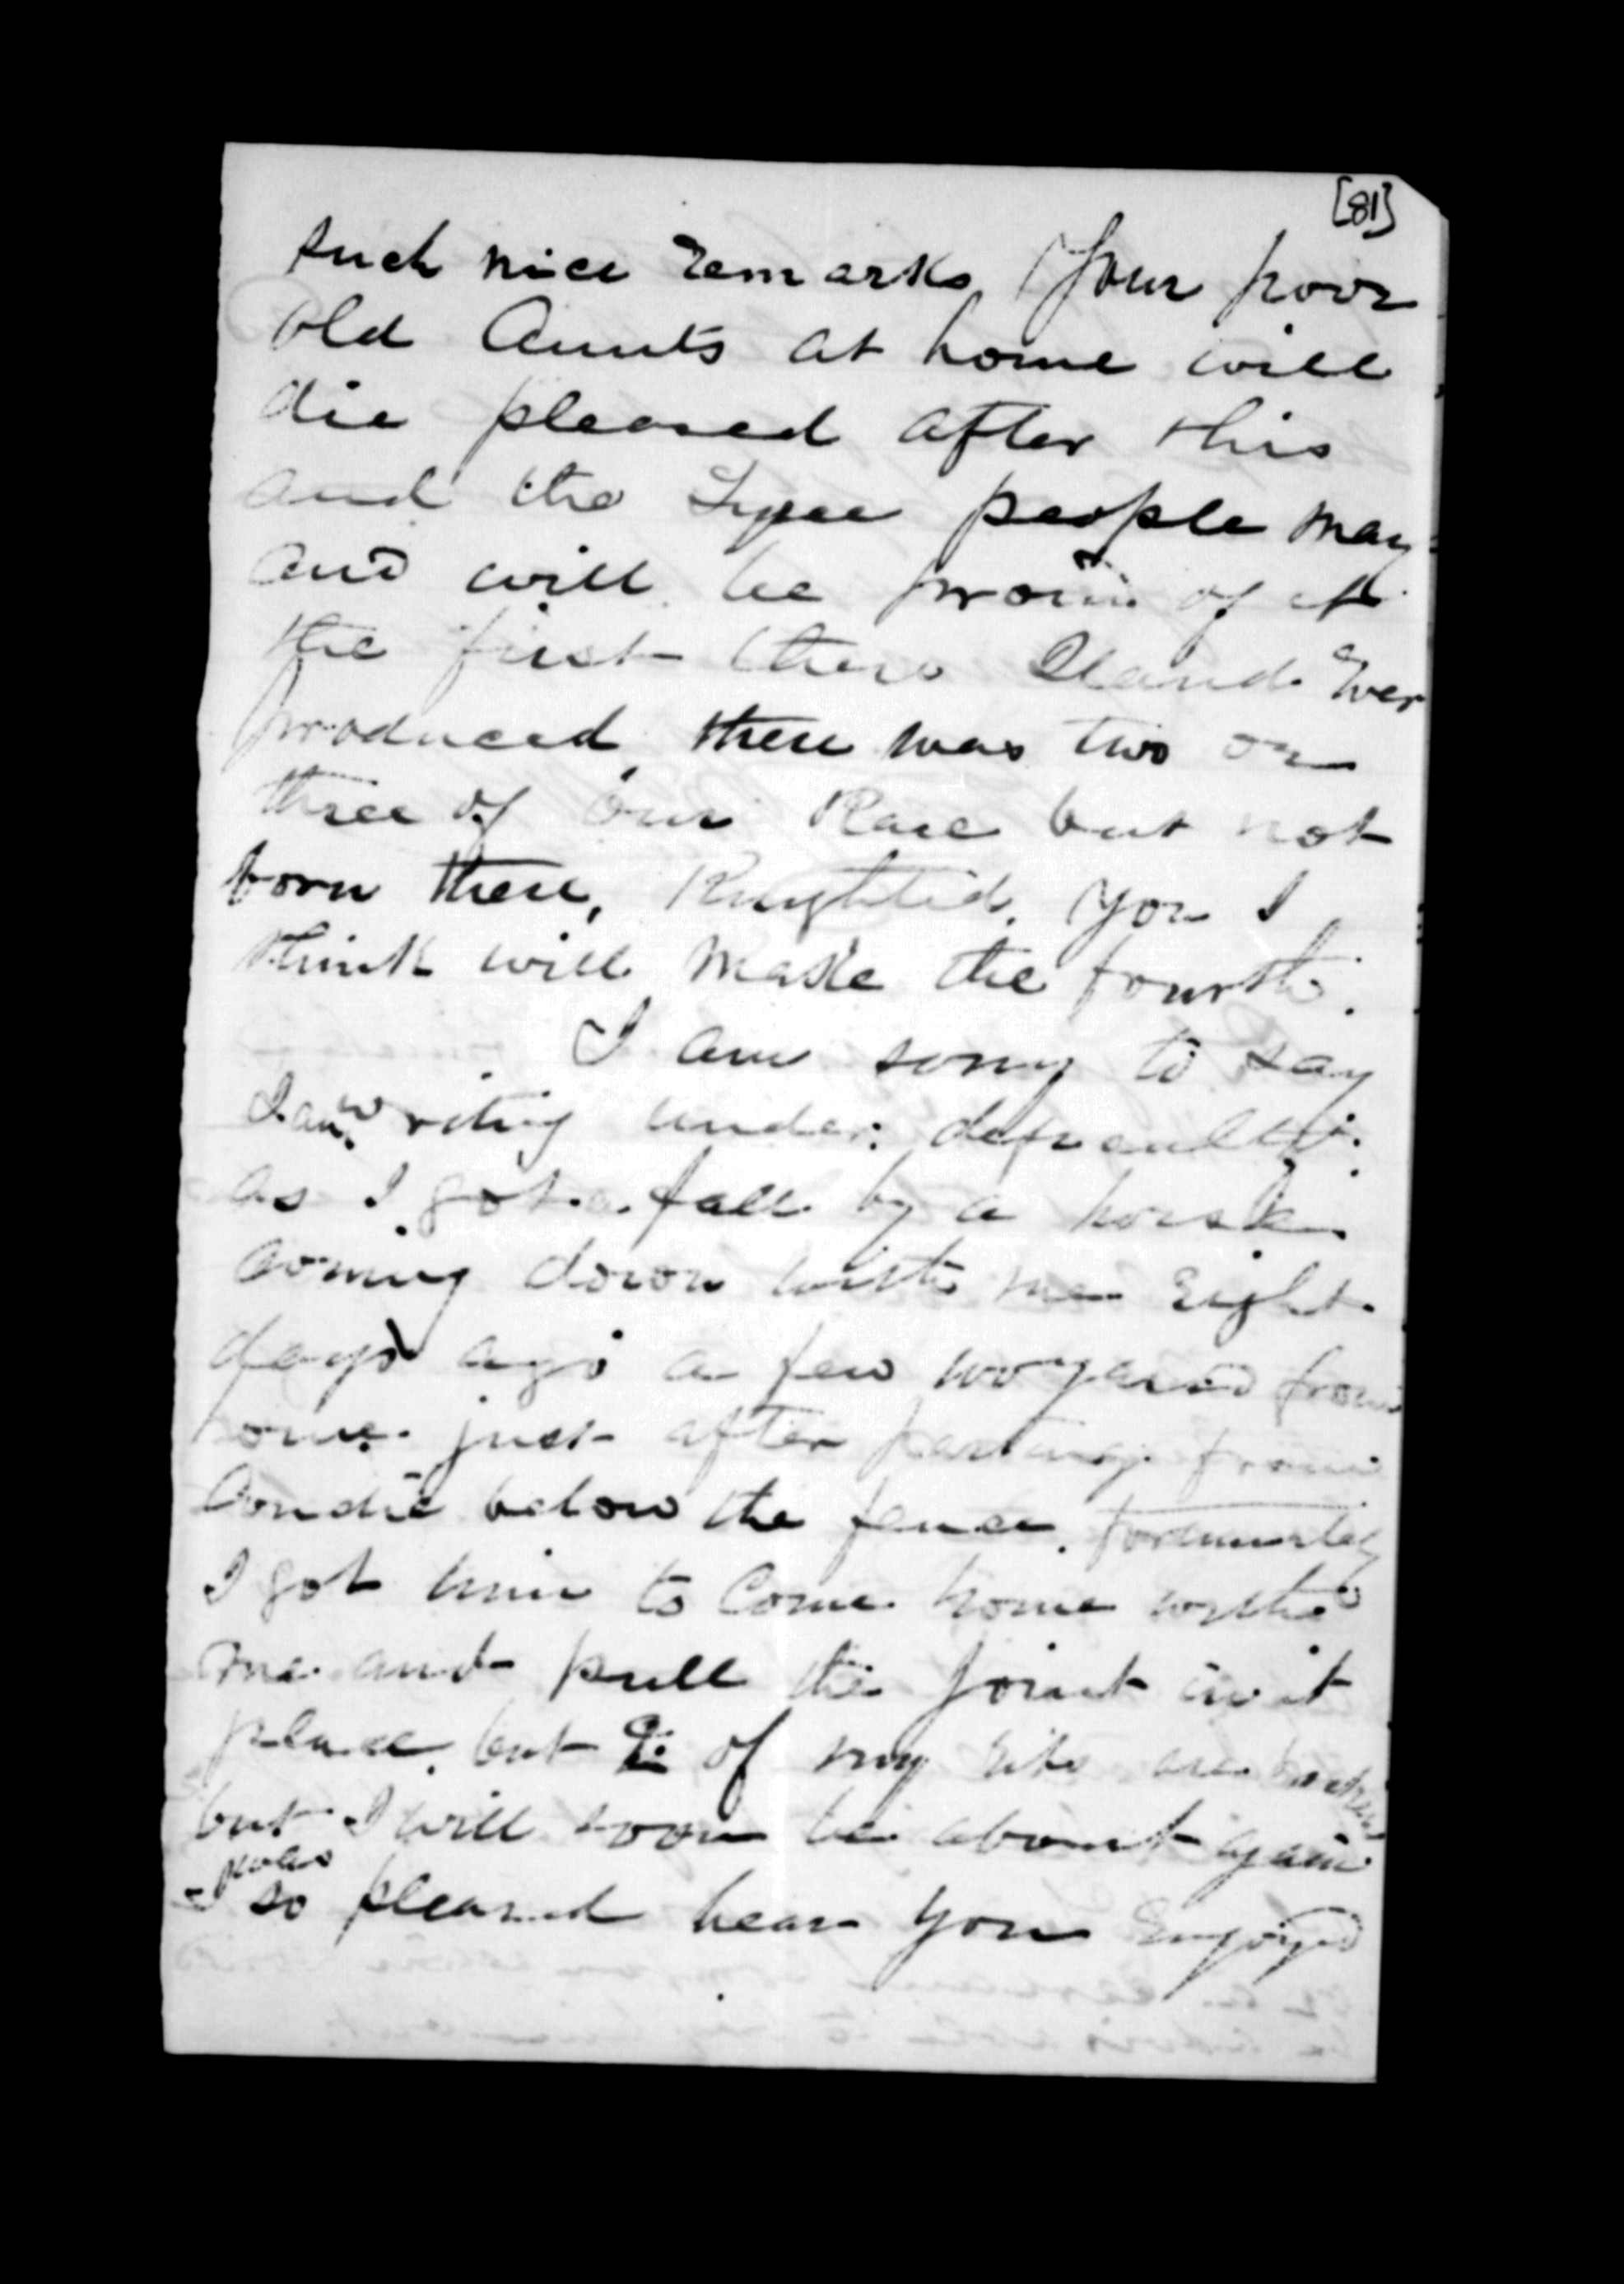 [81]
such nice remarks, Your poor
old Aunts at home will
die pleased after this
and the Tyree people may
and will be proud of it
the first there Iland Ever
produced, there was two or
three of our Race but not
born there, Knighted. You I
think will make the fourth.
I am sorry to say
I am writing under defeculty
as I got a fall by a horse
coming down with me Eight
days ago a few 100 yards from
home just after parting from
Condie below the fence, fortunatley
I got him to Come home with
me and pull the joint in it
place, but 2 of my ribs are
but I will soon be about again
I was so pleased hear you Enjoyed